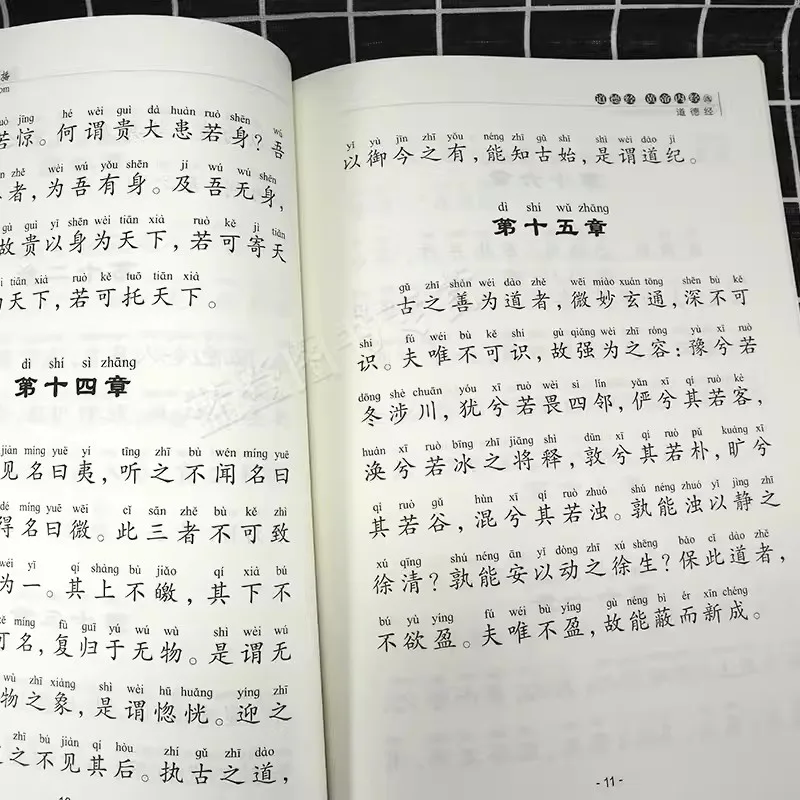 播
om
jīng hé wèi guì dà huàn ruò shēn wú
若惊。何谓贵大患若身？吾
zhě wéi wú yǒu shēn jí wú wú shēn
者，为吾有身。及吾无身，
gù guì yǐ shēn wéi tiān xià ruò kě jì tiān
故贵以身为天下，若可寄天
tiān xià ruò kě tuō tiān xià
天下，若可托天下。
dì shí sì zhāng
第十四章
jiàn míng yuē yí tīng zhī bù wén míng yuē
见名曰夷，听之不闻名曰
dé míng yuē wēi cǐ sān zhě bù kě zhì
得名曰微。此三者不可致
wéi yī qí shàng bù jiǎo qí xià bú
为一。其上不皦，其下不
míng fù guī yú wú wù shì wèi wú
可名，复归于无物。是谓无
wù zhī xiàng shì wèi hū huǎng yíng zhī
物之象，是谓惚恍。迎之
zhī bú jiàn qí hòu zhí gǔ zhī dào
之不见其后。执古之道，
道德经 黄帝内经
道德经
yǐ yù jīn zhī yǒu néng zhī gǔ shǐ shì wèi dào jì
以御今之有，能知古始，是谓道纪。
dì shí wǔ zhāng
第十五章
gǔ zhī shàn wéi dào zhě wēi miào xuán tōng shēn bù kě
古之善为道者，微妙玄通，深不可
shí fú wéi bù kě shí gù qiǎng wéi zhī róng yù xī ruò
识。夫唯不可识，故强为之容：豫兮若
dōng shè chuān yóu xī ruò wèi sì lín yǎn xī qí ruò kè
冬涉川，犹兮若畏四邻，俨兮其若客，
huàn xī ruò bīng zhī jiāng shì dūn xī qí ruò pǔ kuàng xī
涣兮若冰之将释，敦兮其若朴，旷兮
qí ruò gǔ hùn xī qí ruò zhuó shú néng zhuó yǐ jìng zhī
其若谷，混兮其若浊。孰能浊以静之
xú qīng shú néng ān yǐ dòng zhī xú shēng bǎo cǐ dào zhě
徐清？孰能安以动之徐生？保此道者，
bú yù yíng fú wéi bù yíng gù néng bì ér xīn chéng
不欲盈。夫唯不盈，故能蔽而新成。
- 11 -